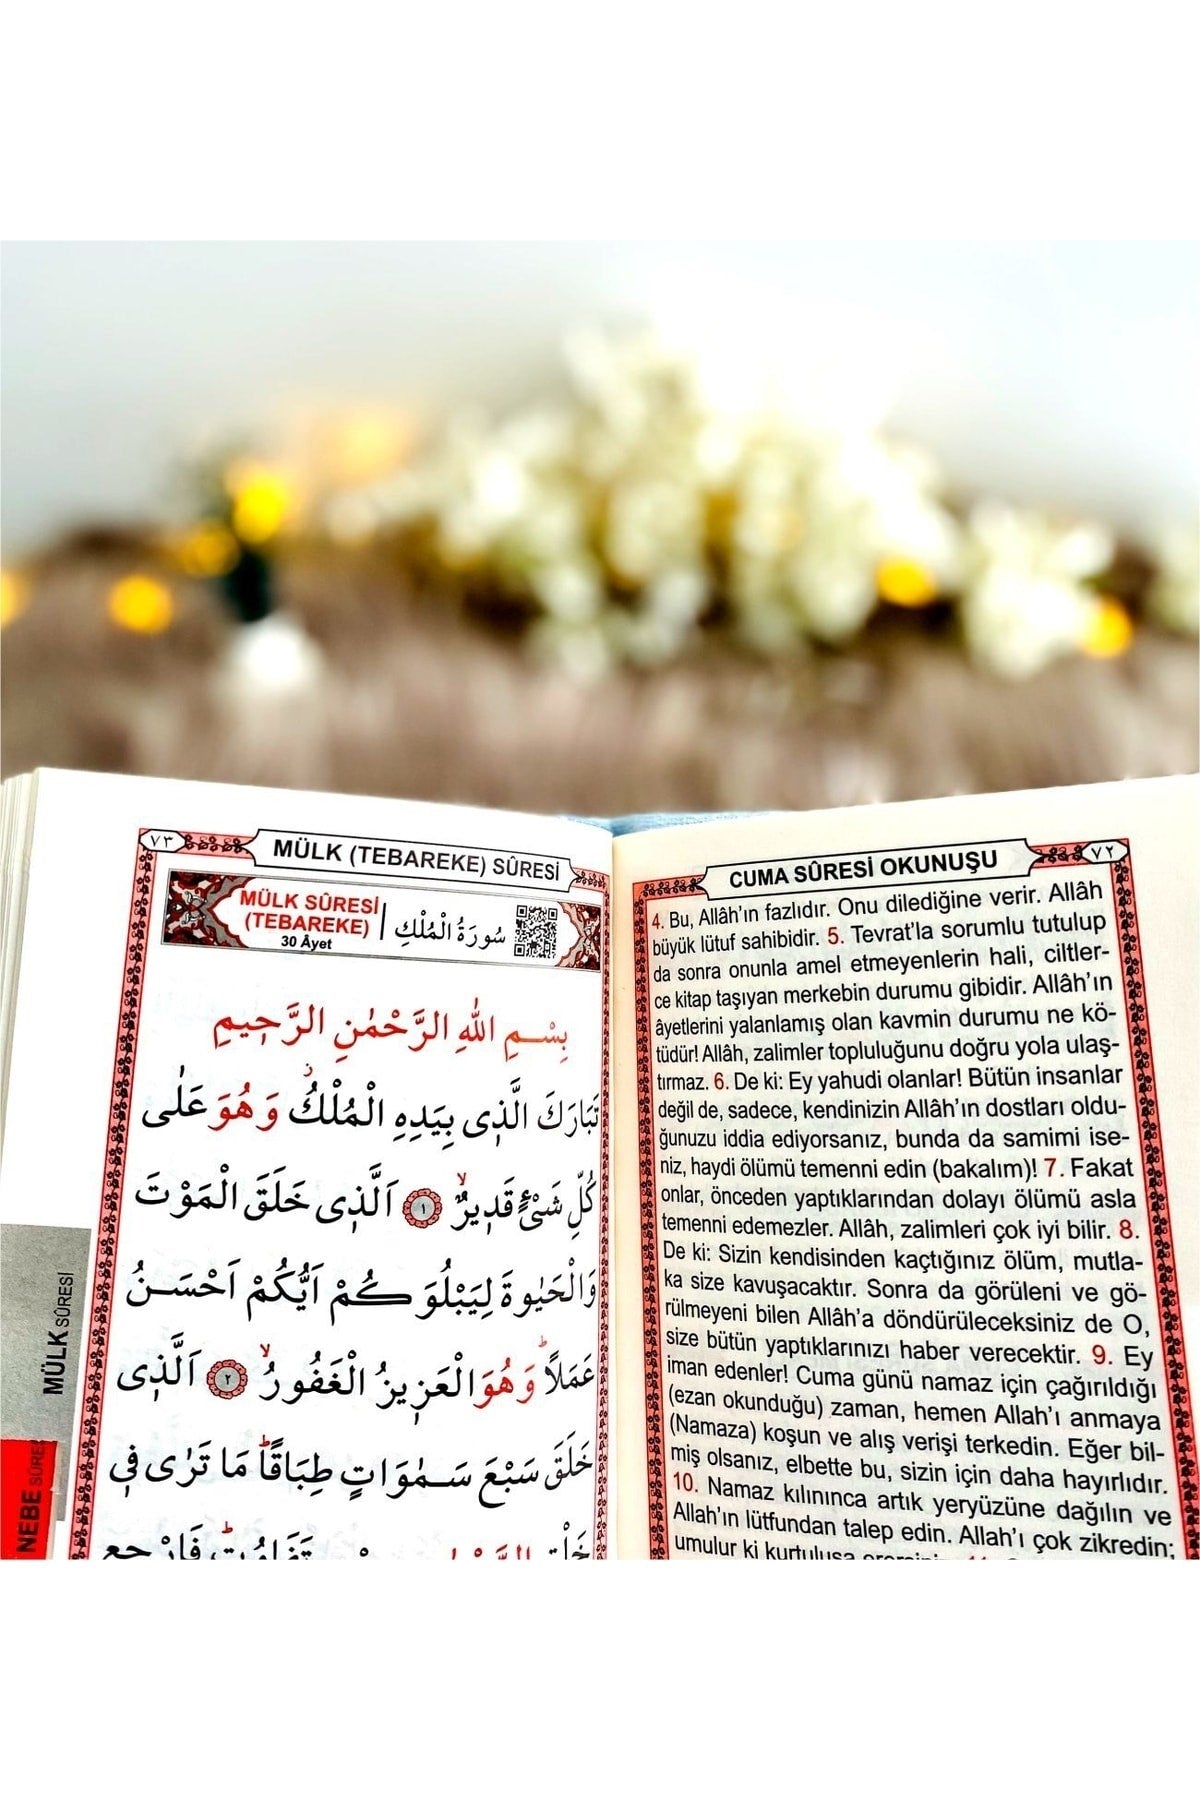 ٧٢
CUMA SÛRESİ OKUNUŞU
4. Bu, Allâh'ın fazlıdır. Onu dilediğine verir. Allâh
büyük lütuf sahibidir. 5. Tevrat'la sorumlu tutulup
da sonra onunla amel etmeyenlerin hali, ciltler-
ce kitap taşıyan merkebin durumu gibidir. Allâh'ın
âyetlerini yalanlamış olan kavmin durumu ne kö-
tüdür! Allâh, zalimler topluluğunu doğru yola ulaş-
tırmaz. 6. De ki: Ey yahudi olanlar! Bütün insanlar
değil de, sadece, kendinizin Allâh'ın dostları oldu-
ğunuzu iddia ediyorsanız, bunda da samimi ise-
niz, haydi ölümü temenni edin (bakalım)! 7. Fakat
onlar, önceden yaptıklarından dolayı ölümü asla
temenni edemezler. Allâh, zalimleri çok iyi bilir. 8.
De ki: Sizin kendisinden kaçtığınız ölüm, mutla-
ka size kavuşacaktır. Sonra da görüleni ve gö-
rülmeyeni bilen Allâh'a döndürüleceksiniz de O,
size bütün yaptıklarınızı haber verecektir. 9. Ey
iman edenler! Cuma günü namaz için çağırıldığı
(ezan okunduğu) zaman, hemen Allah'ı anmaya
(Namaza) koşun ve alış verişi terkedin. Eğer bil-
miş olsanız, elbette bu, sizin için daha hayırlıdır.
10. Namaz kılınınca artık yeryüzüne dağılın ve
Allah'ın lütfundan talep edin. Allah'ı çok zikredin;
umulur ki kurtuluşa
٧٣
MÜLK (TEBAREKE) SÛRESİ
MÜLK SÛRESİ
(TEBAREKE)
30 Âyet
سُورَةُ الْمُلْكِ
بِسْمِ اللهِ الرَّحْمٰنِ الرَّحِيمِ
تَبَارَكَ الَّذِى بِيَدِهِ الْمُلْكُ وَهُوَ عَلٰى
كُلِّ شَىْءٍ قَدِيرٌ ١ اَلَّذِى خَلَقَ الْمَوْتَ
وَالْحَيٰوةَ لِيَبْلُوَكُمْ اَيُّكُمْ اَحْسَنُ
عَمَلاً وَهُوَ الْعَزِيزُ الْغَفُورُ ٢ اَلَّذِى
خَلَقَ سَبْعَ سَمٰوَاتٍ طِبَاقًا مَا تَرٰى فِى
MÜLK SÛRESİ
NEBE SÛRES